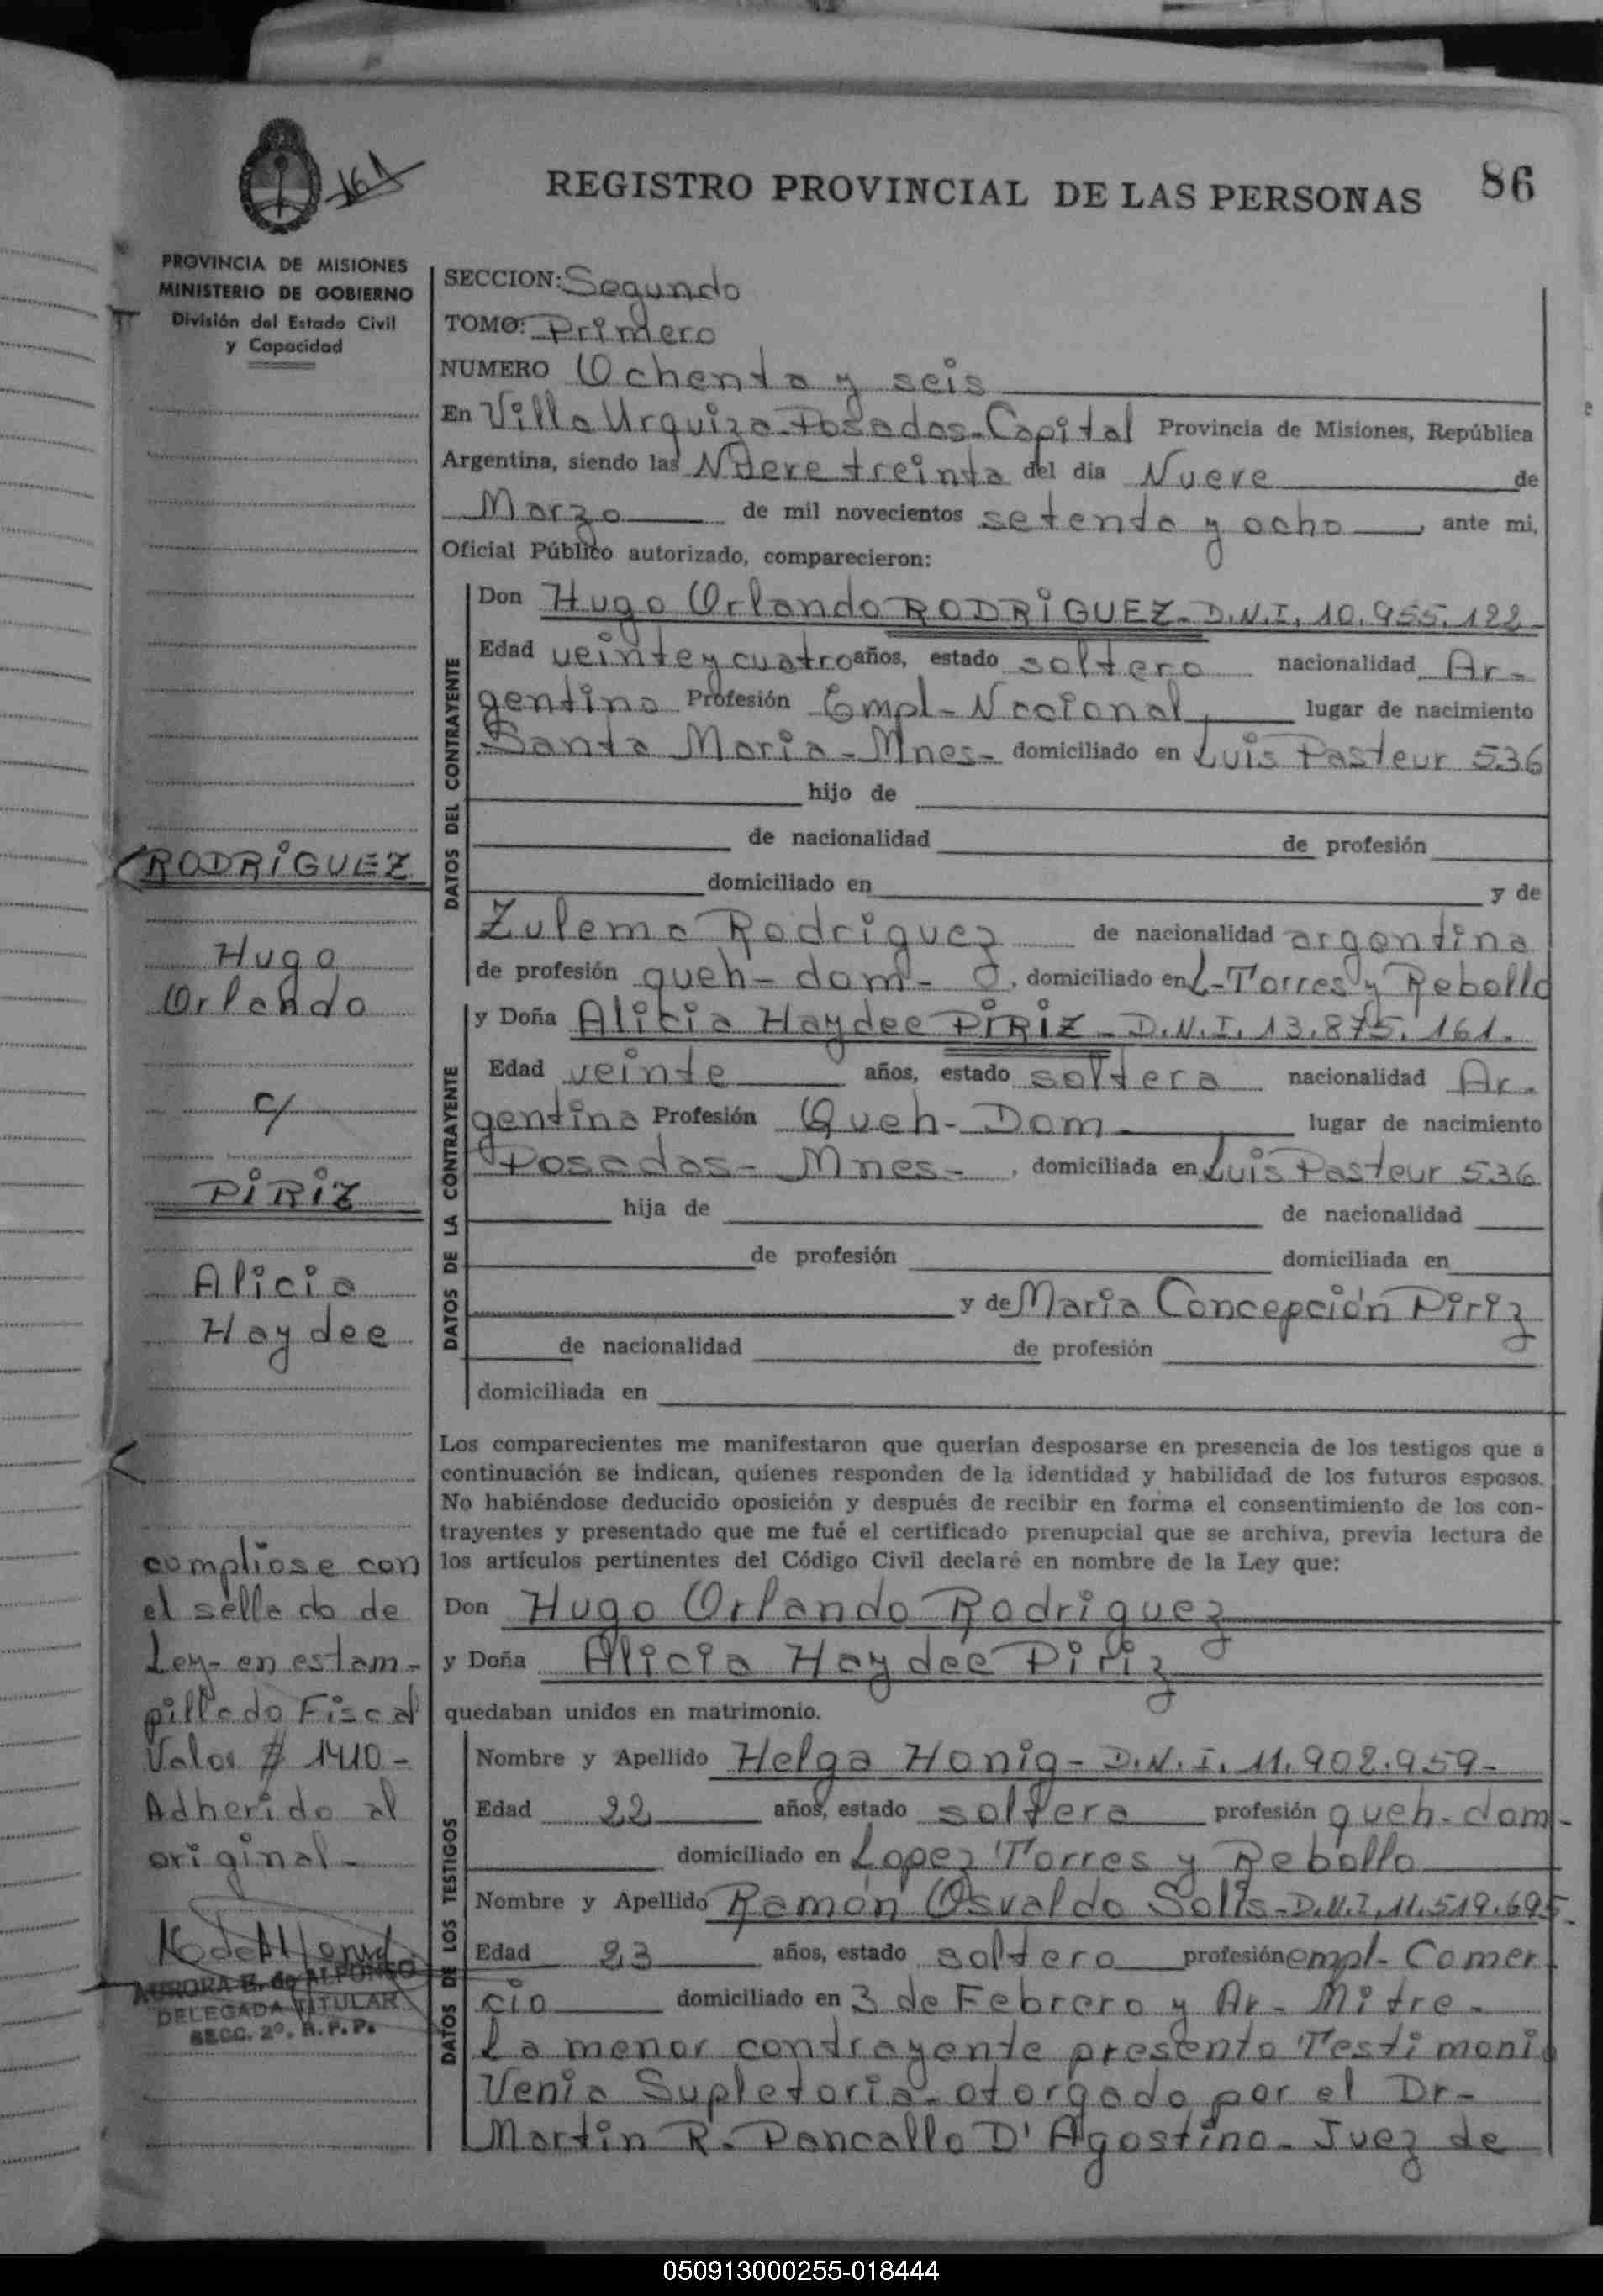 161
REGISTRO PROVINCIAL DE LAS PERSONAS
86
PROVINCIA DE MISIONES
MINISTERIO DE GOBIERNO
División del Estado Civil
y Capacidad
SECCION: Segundo
TOMO: Primero
NUMERO Ochenta y seis
En Villa Urquiza-Posadas-Capital Provincia de Misiones, República
Argentina, siendo las Nueve treinta del día Nueve de
Marzo de mil novecientos setenta y ocho, ante mi,
Oficial Público autorizado, comparecieron:
DATOS DEL CONTRAYENTE
Don Hugo Orlando RODRIGUEZ- D.N.I. 10.955.122-
Edad veinte y cuatro años, estado soltero nacionalidad Ar-
gentina Profesión Empl-Nacional, lugar de nacimiento
Santa Maria-Mnes- domiciliado en Luis Pasteur 536
hijo de
de nacionalidad de profesión
domiciliado en y de
Zulema Rodriguez de nacionalidad argentina
de profesión queh-dom-, domiciliado en L-Torres y Rebollo
DATOS DE LA CONTRAYENTE
y Doña Alicia Haydee PIRIZ- D.N.I. 13.875.161.
Edad veinte años, estado soltera nacionalidad Ar-
gentina Profesión Queh-Dom- lugar de nacimiento
Posadas-Mnes-, domiciliada en Luis Pasteur 536
hija de de nacionalidad
de profesión domiciliada en
y de Maria Concepción Piriz
de nacionalidad de profesión
domiciliada en
Los comparecientes me manifestaron que querían desposarse en presencia de los testigos que a
continuación se indican, quienes responden de la identidad y habilidad de los futuros esposos.
No habiéndose deducido oposición y después de recibir en forma el consentimiento de los con-
trayentes y presentado que me fué el certificado prenupcial que se archiva, previa lectura de
los artículos pertinentes del Código Civil declaré en nombre de la Ley que:
Don Hugo Orlando Rodriguez
y Doña Alicia Haydee Piriz
quedaban unidos en matrimonio.
DATOS DE LOS TESTIGOS
Nombre y Apellido Helga Honig- D.N.I. 11.902.959-
Edad 22 años, estado soltera profesión queh-dom-
domiciliado en Lopez Torres y Rebollo
Nombre y Apellido Ramón Osvaldo Solis-D.N.I. 11.519.695-
Edad 23 años, estado soltero profesión empl-Comer
cio domiciliado en 3 de Febrero y Av-Mitre-
La menor contrayente presento Testimonio
Venia Supletoria-otorgado por el Dr-
Martin R. Poncallo D'Agostino-Juez de
RODRIGUEZ
Hugo
Orlando
c/
PIRIZ
Alicia
Haydee
compliose con
el sellado de
Ley-en estam-
pillado Fiscal
Valor $ 1410-
Adherido al
original-
AURORA E. de ALFONSO
DELEGADA TITULAR
SECC. 2º. R.P.P.
050913000255-018444